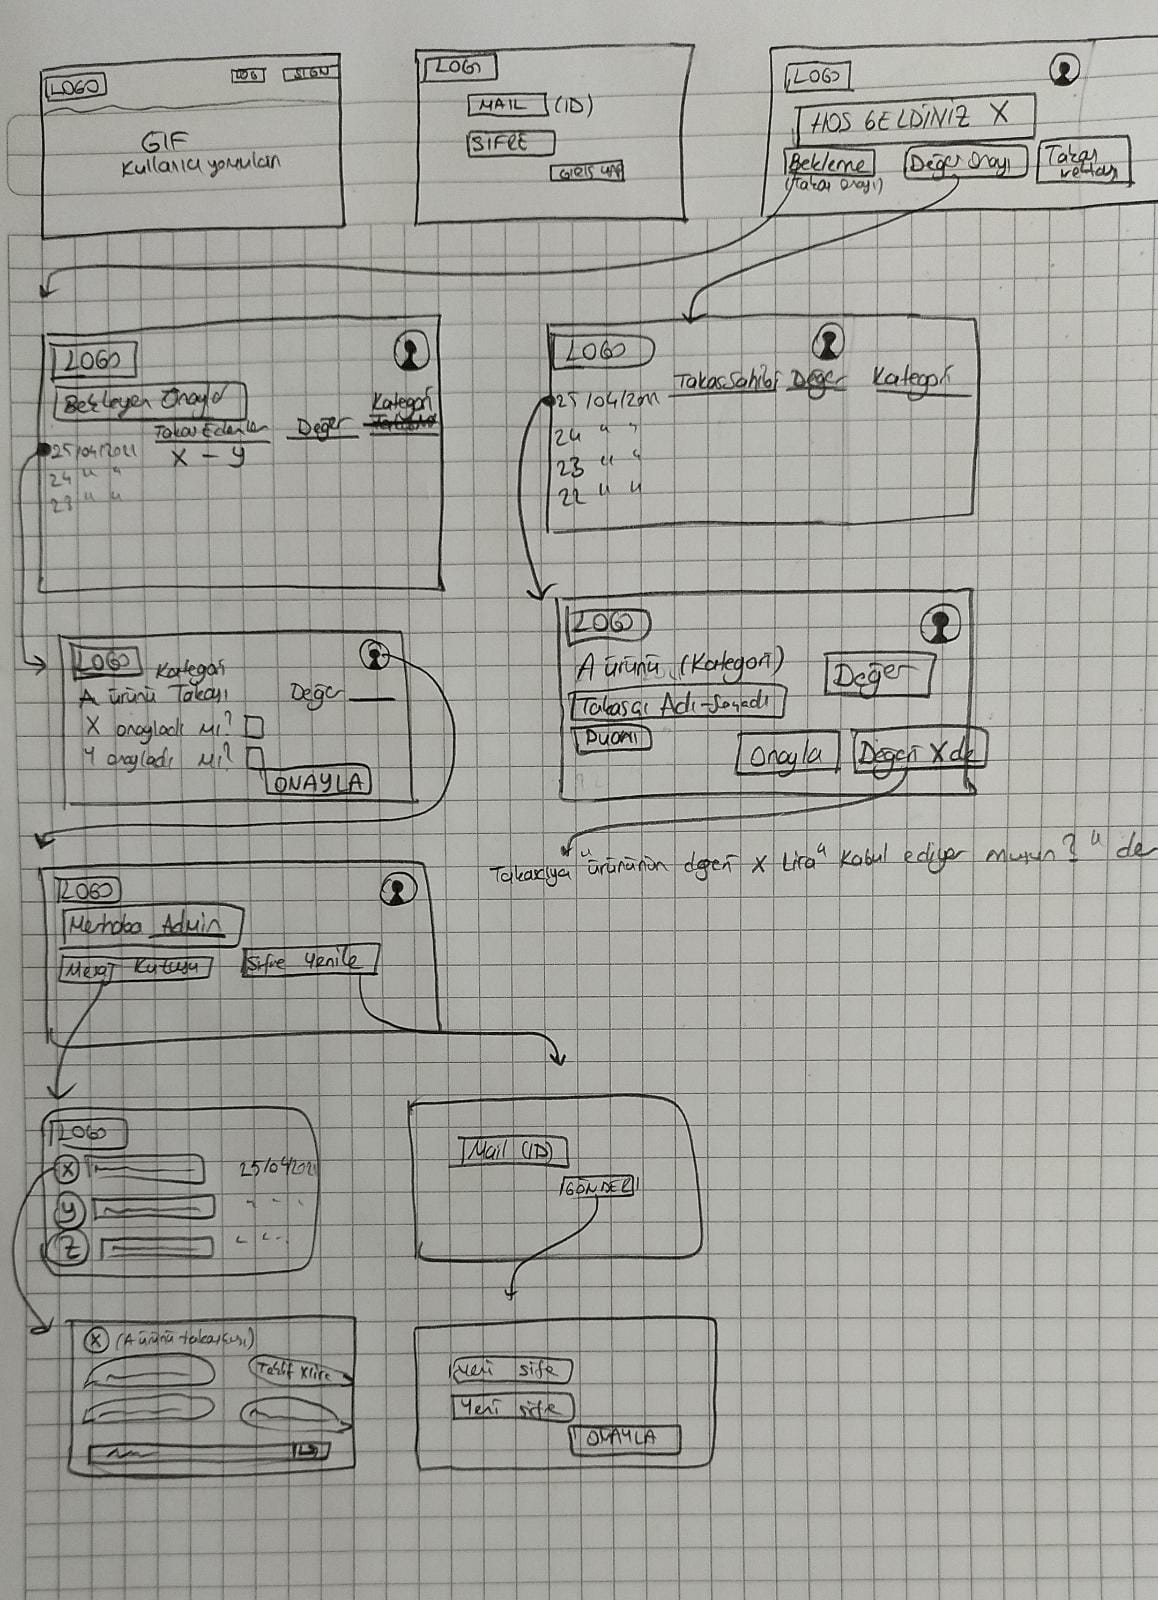 LOGO
LOG
SIGN
GIF
Kullanıcı yorumları
LOGO
MAIL (ID)
SİFRE
GİRİS YAP
LOGO
HOS GELDİNİZ X
Bekleme
(Takas Onayı)
Değer Onayı
Takas
LOGO
Bekleyen Onayla
Takas Edenler
Değer
Kategori
25/04/2021
X - Y
24 " "
23 " "
LOGO
Takas Sahibi Değer Kategori
25/04/2021
24 " "
23 " "
22 " "
LOGO
Kategori
A ürünü Takası
Değer
X onayladı mı?
Y onayladı mı?
ONAYLA
LOGO
A ürünü (Kategori)
Değer
Takasçı Adı-Soyadı
PUANI
Onayla
Değeri X de
Takasçıya "ürününün değeri X Lira" Kabul ediyor musun? " de
LOGO
Merhaba Admin
Mesaj Kutusu
Sifre Yenile
LOGO
X
25/04/2021
Y
" " "
Z
" " "
Mail (ID)
GÖNDER
X (A ürünü takasçısı)
Teklif X lira
Yeni sifre
Yeni sifre
ONAYLA